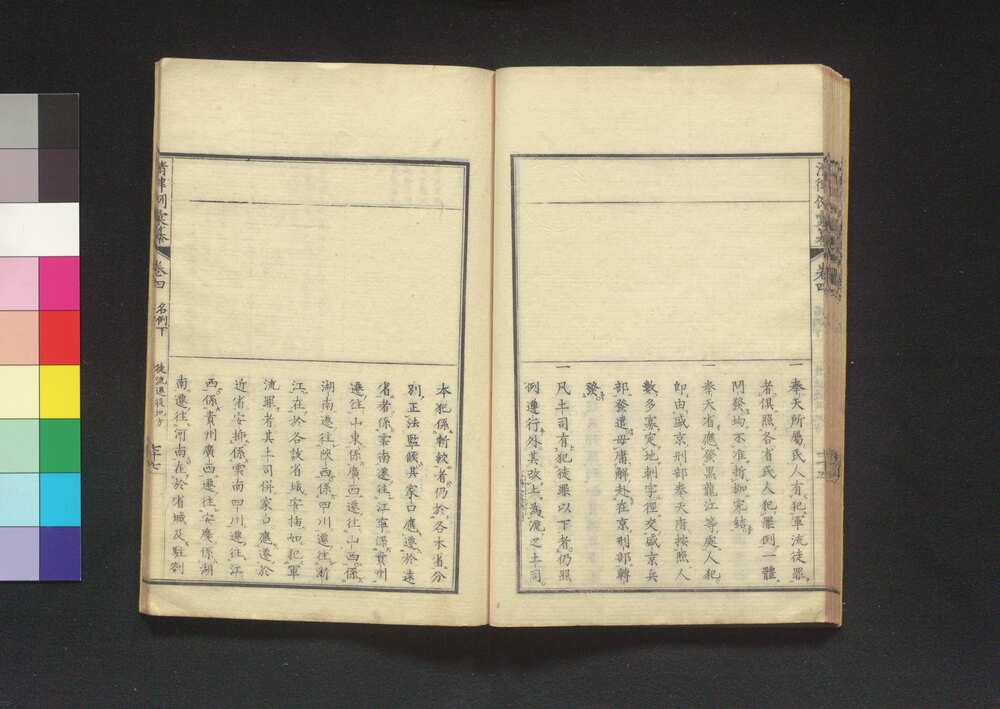 一 奉天所屬民人有犯軍流徒罪
者俱照各省民人犯罪例一體
問發均不准折枷完結
一 奉天省應發黑龍江等處人犯
即由盛京刑部奉天府按照人
數多寡定地刺字徑交盛京兵
部發遣毋庸解赴在京刑部轉
發
一 凡土司有犯徒罪以下者仍照
例遵行外其改土為流之土司
本犯係斬絞者仍於各本省分
別正法監候其家口應遷於遠
省者係雲南遷往江寧係貴州
遷往山東係廣西遷往山西係
湖南遷往陝西係四川遷往浙
江在於各該省城安插如犯軍
流罪者其土司併家口應遷於
近省安插係雲南四川遷往江
西係貴州廣西遷往安慶係湖
南遷往河南在於省城及駐劄
卷四
卷四 名例下 徒流遷徙地方